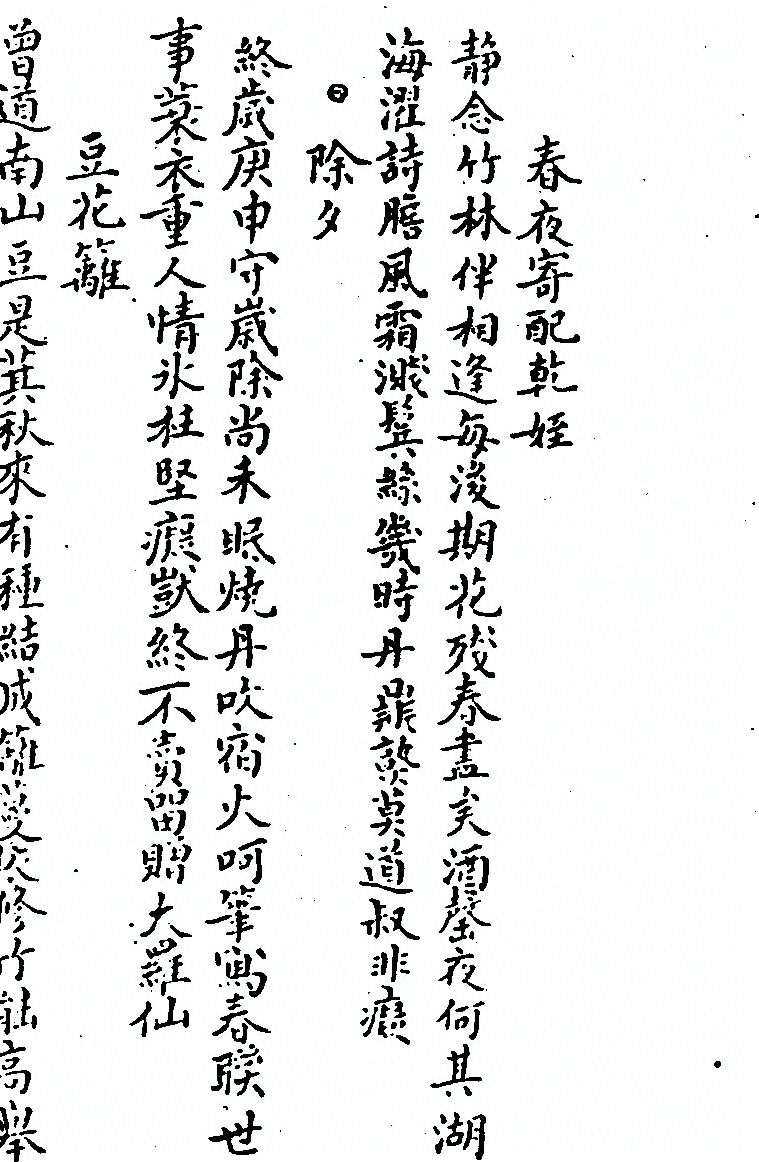 春夜寄配乾姪
静念竹林伴相逢每後期花殘春盡矣酒罄夜何其湖
海濯詩瞻風霜濺鬢絲幾時丹鼎熬莫道叔非癡
除夕
終歲庚申守歲除尚未眠燒丹吹宿火呵筆寫春聯世
事蓑衣重人情氷柱堅癡獃終不賣留贈大羅仙
豆花籬
曽道南山豆是萁秋來有種結成籬蔓修竹能高舉